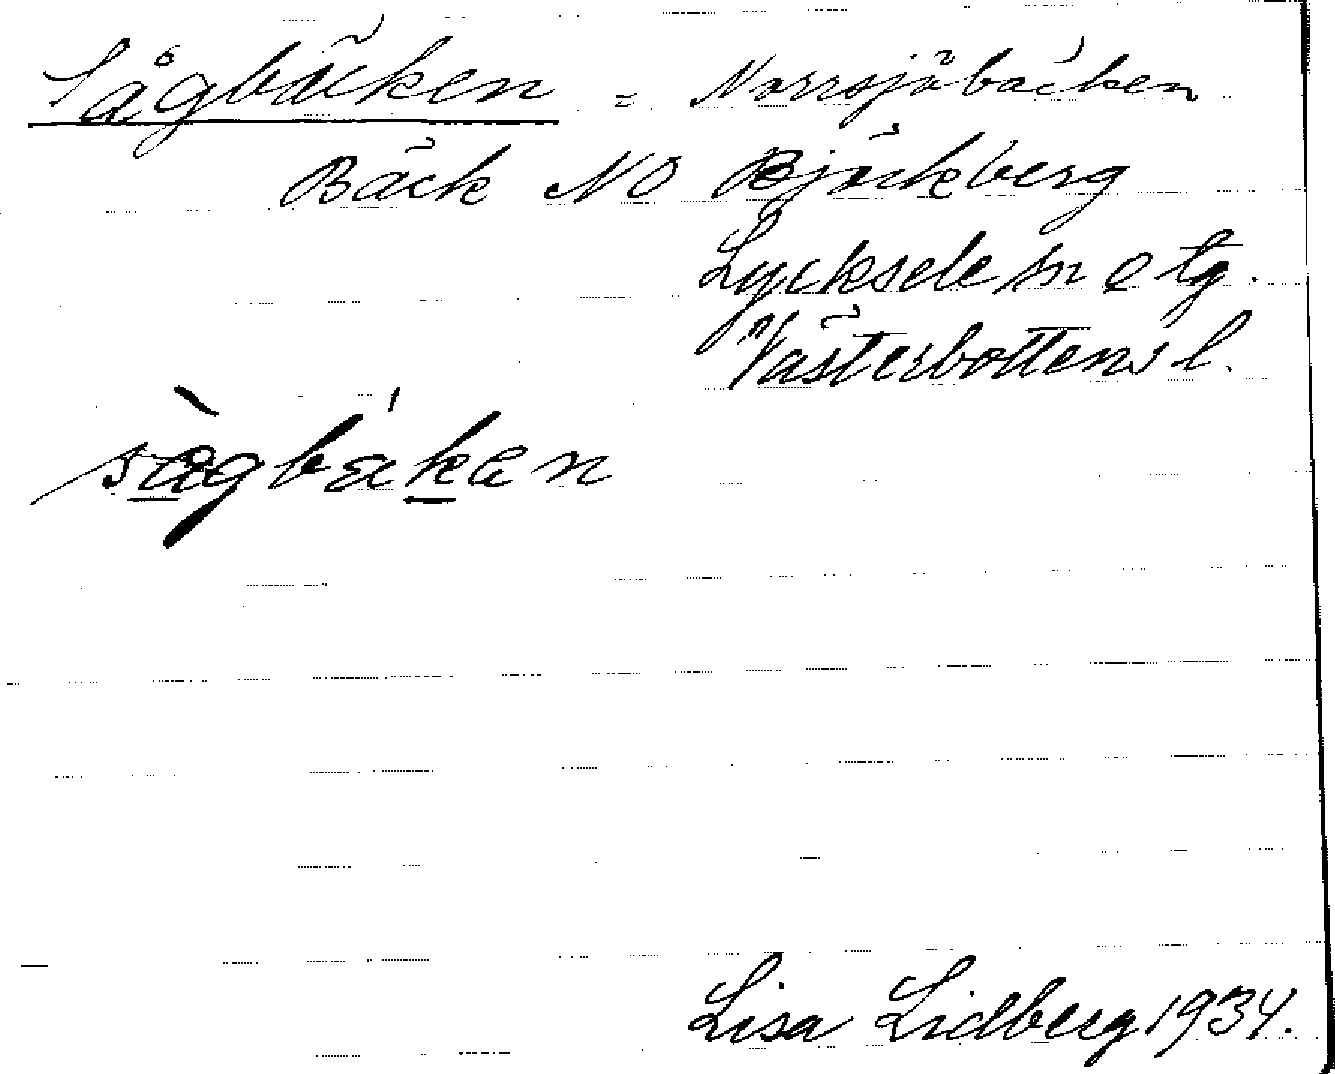 Sågbäcken = Norrsjöbäcken
Bäck NO Bjäckberg
Lycksele sn o tg.
Västerbottens l.
Lisa Lidberg 1934.